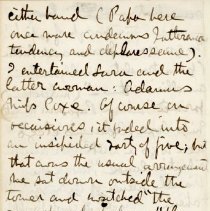 either hand (Papa here
once more condemns Lutheran
tendency and
I entertained Sara and the
latter woman:
Miss Coxe. Of course on
occasions, it faded into
an inspired sort of five; but
that was the usual arrangement
we sat down outside the
tower and watched "the